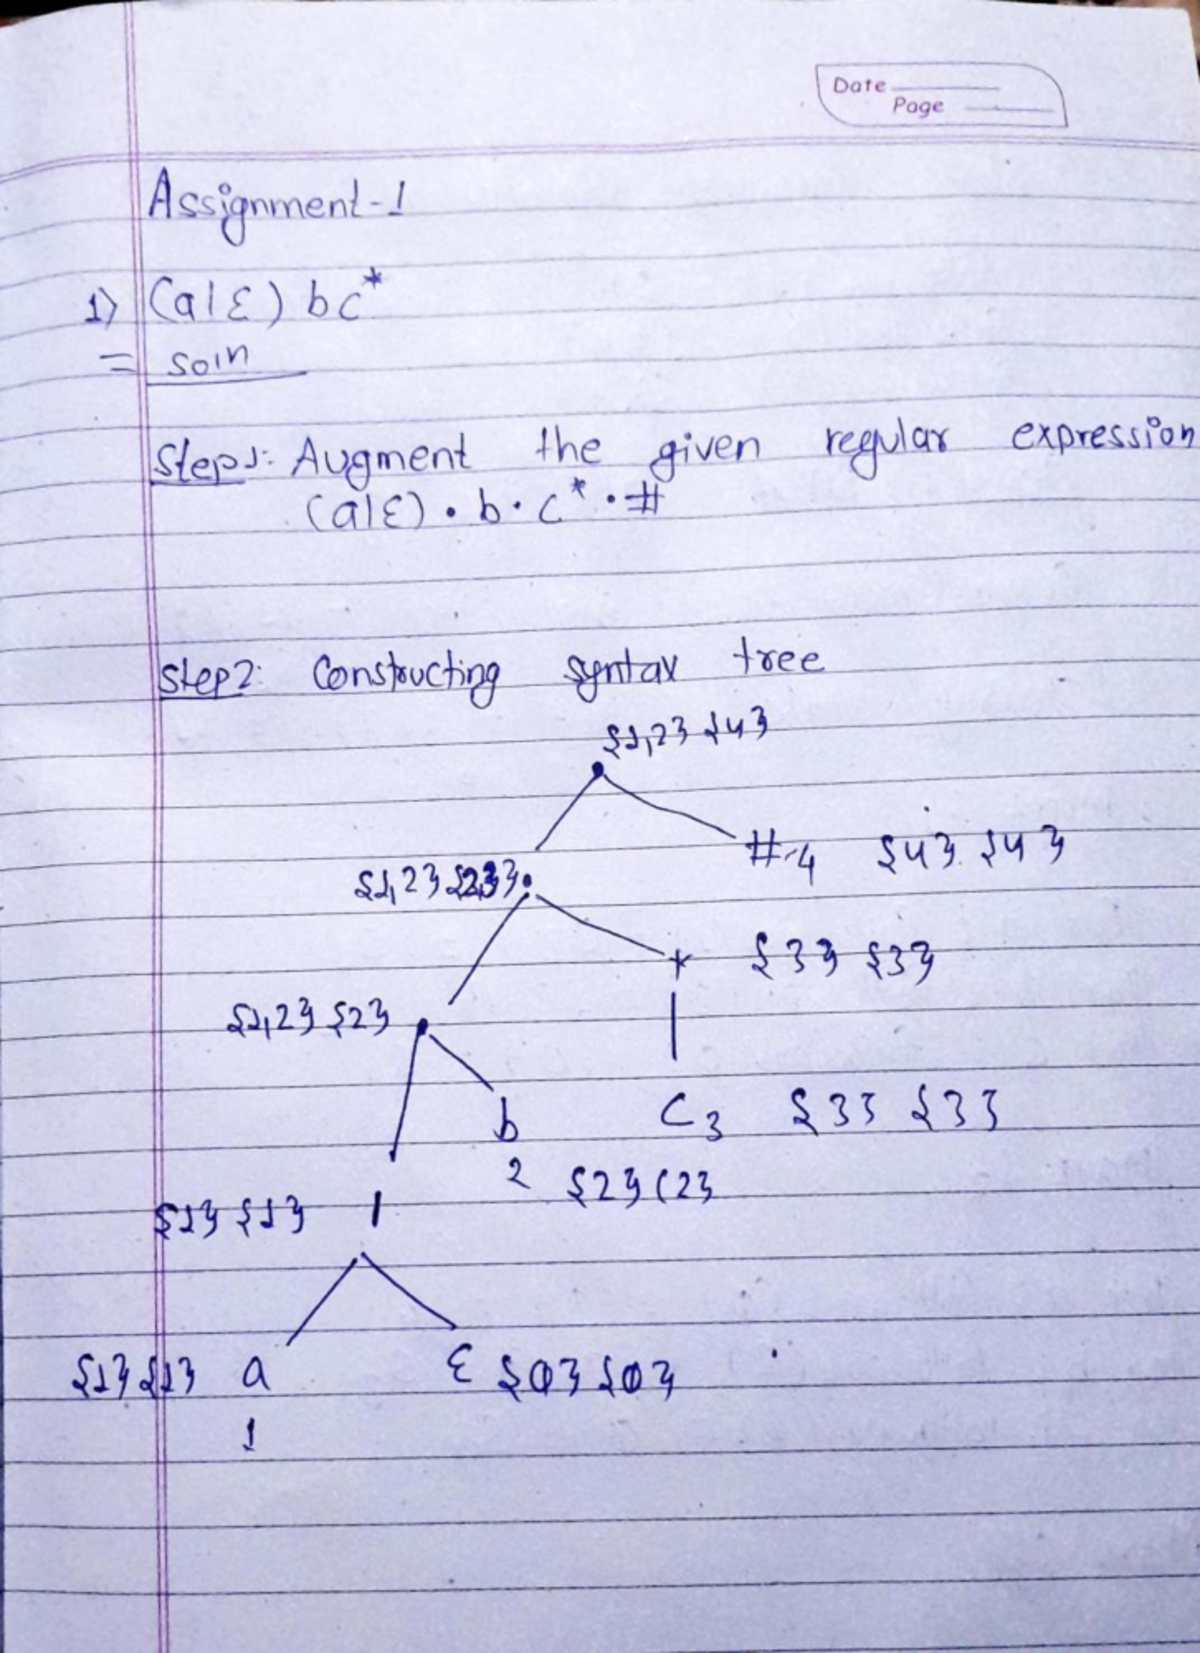 Date
Page
Assignment-1
1) (a|ε) bc*
= soln
Step1: Augment the given regular expression
(a|ε) • b • c* • #
Step2: Constructing syntax tree
{1,2} {4}
#4 {4} {4}
{1,2} {2,3}
* {3} {3}
{1,2} {2}
b c3 {3} {3}
2 {2} {2}
{1} {1} |
{1} {1} a ε {Φ} {Φ}
1